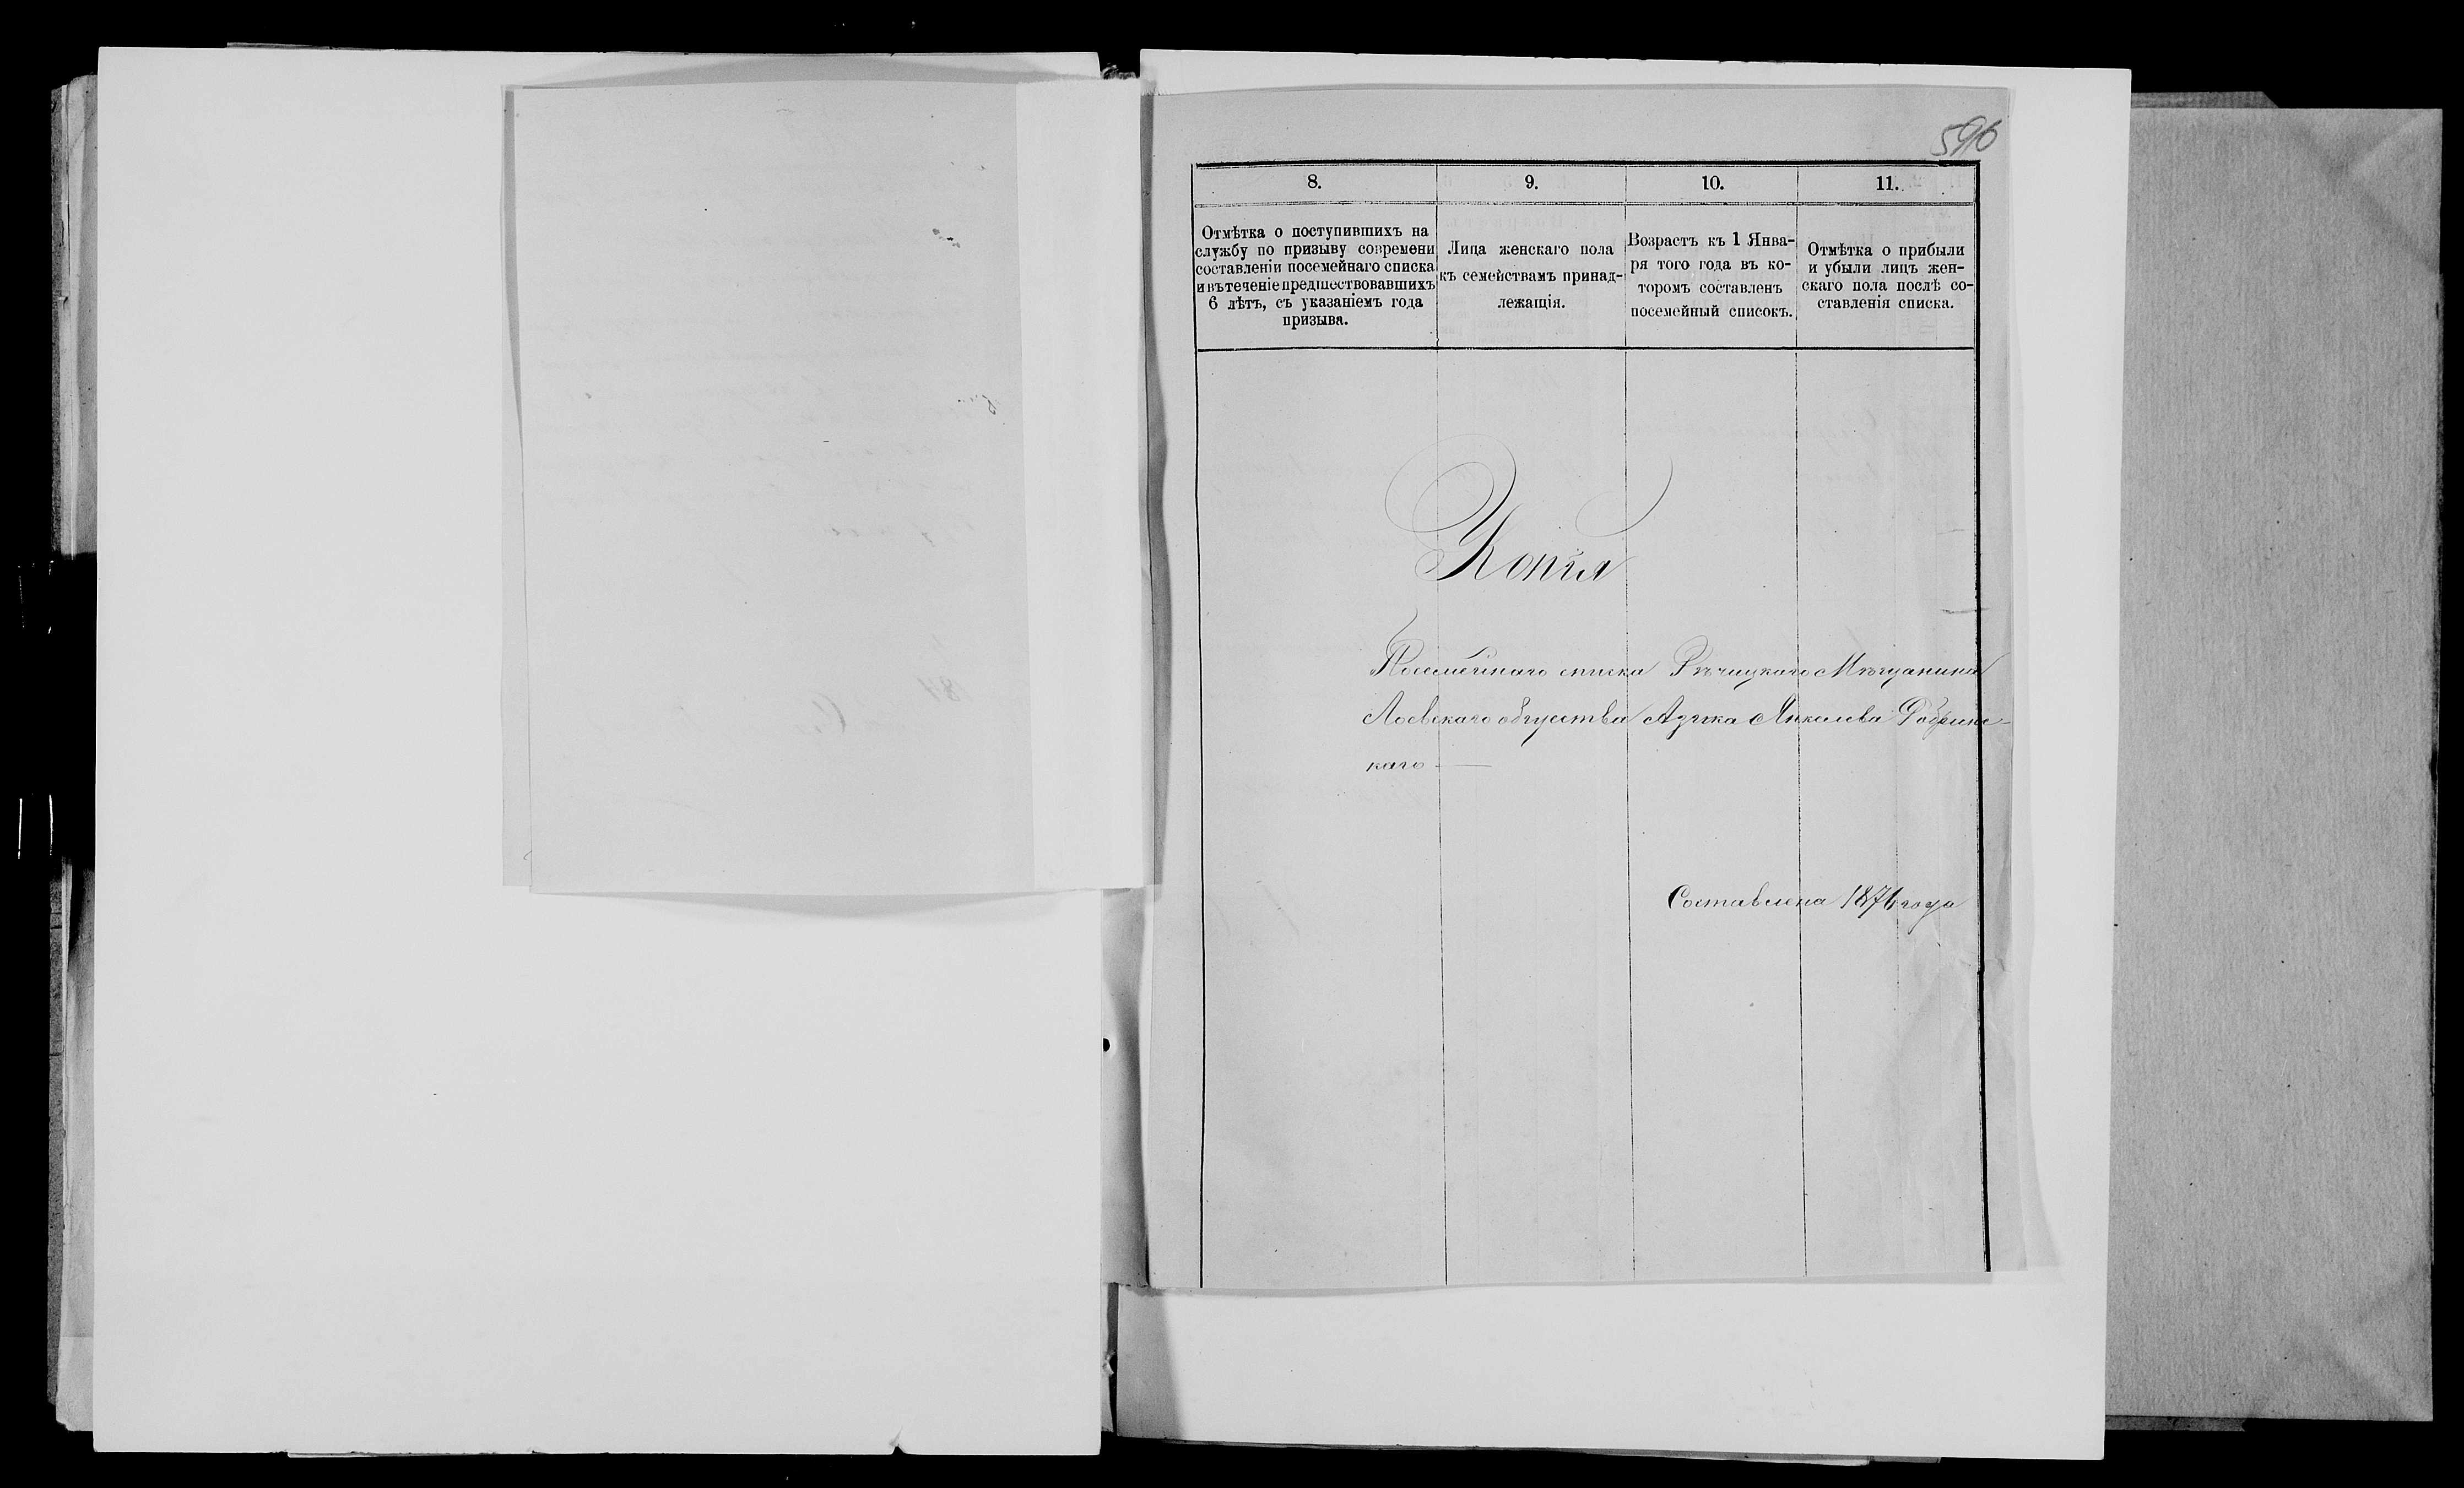 596
8.
9.
10.
11.
Отмѣтка о поступившихъ на
службу по призыву современи
составленіи посемейнаго списка
и въ теченіе предшествовавшихъ
6 лѣтъ, съ указаніемъ года
призыва.
Лица женскаго пола
къ семействамъ принад-
лежащія.
Возрастъ къ 1 Янва-
ря того года въ ко-
торомъ составленъ
посемейный списокъ.
Отмѣтка о прибыли
и убыли лицъ жен-
скаго пола послѣ со-
ставленія списка.
Копія
Посемейнаго списка Рѣчицкаго Мѣщанина
Лоевскаго общества Янкелева
каго
Составлена 1876 года